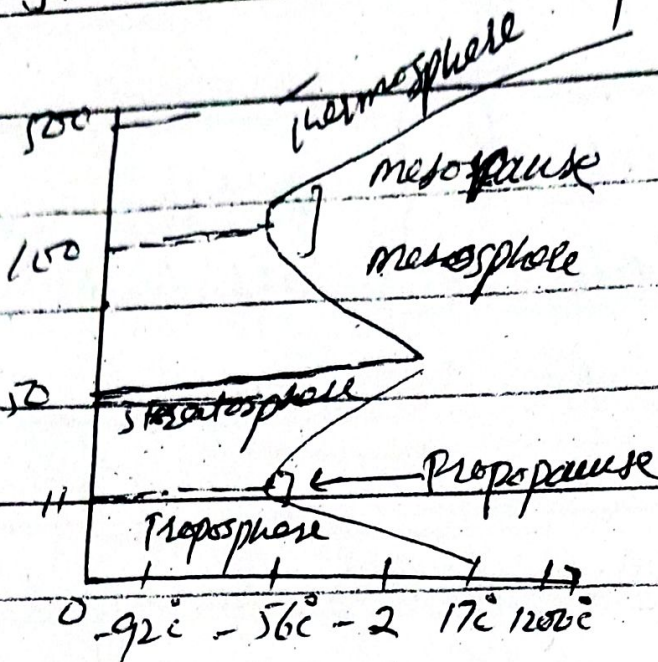 Thermosphere
500
mesopause
100
mesosphere
50
stratosphere
11
Propopause
Troposphere
0 -92c° -56c° -2 17c° 1200c°